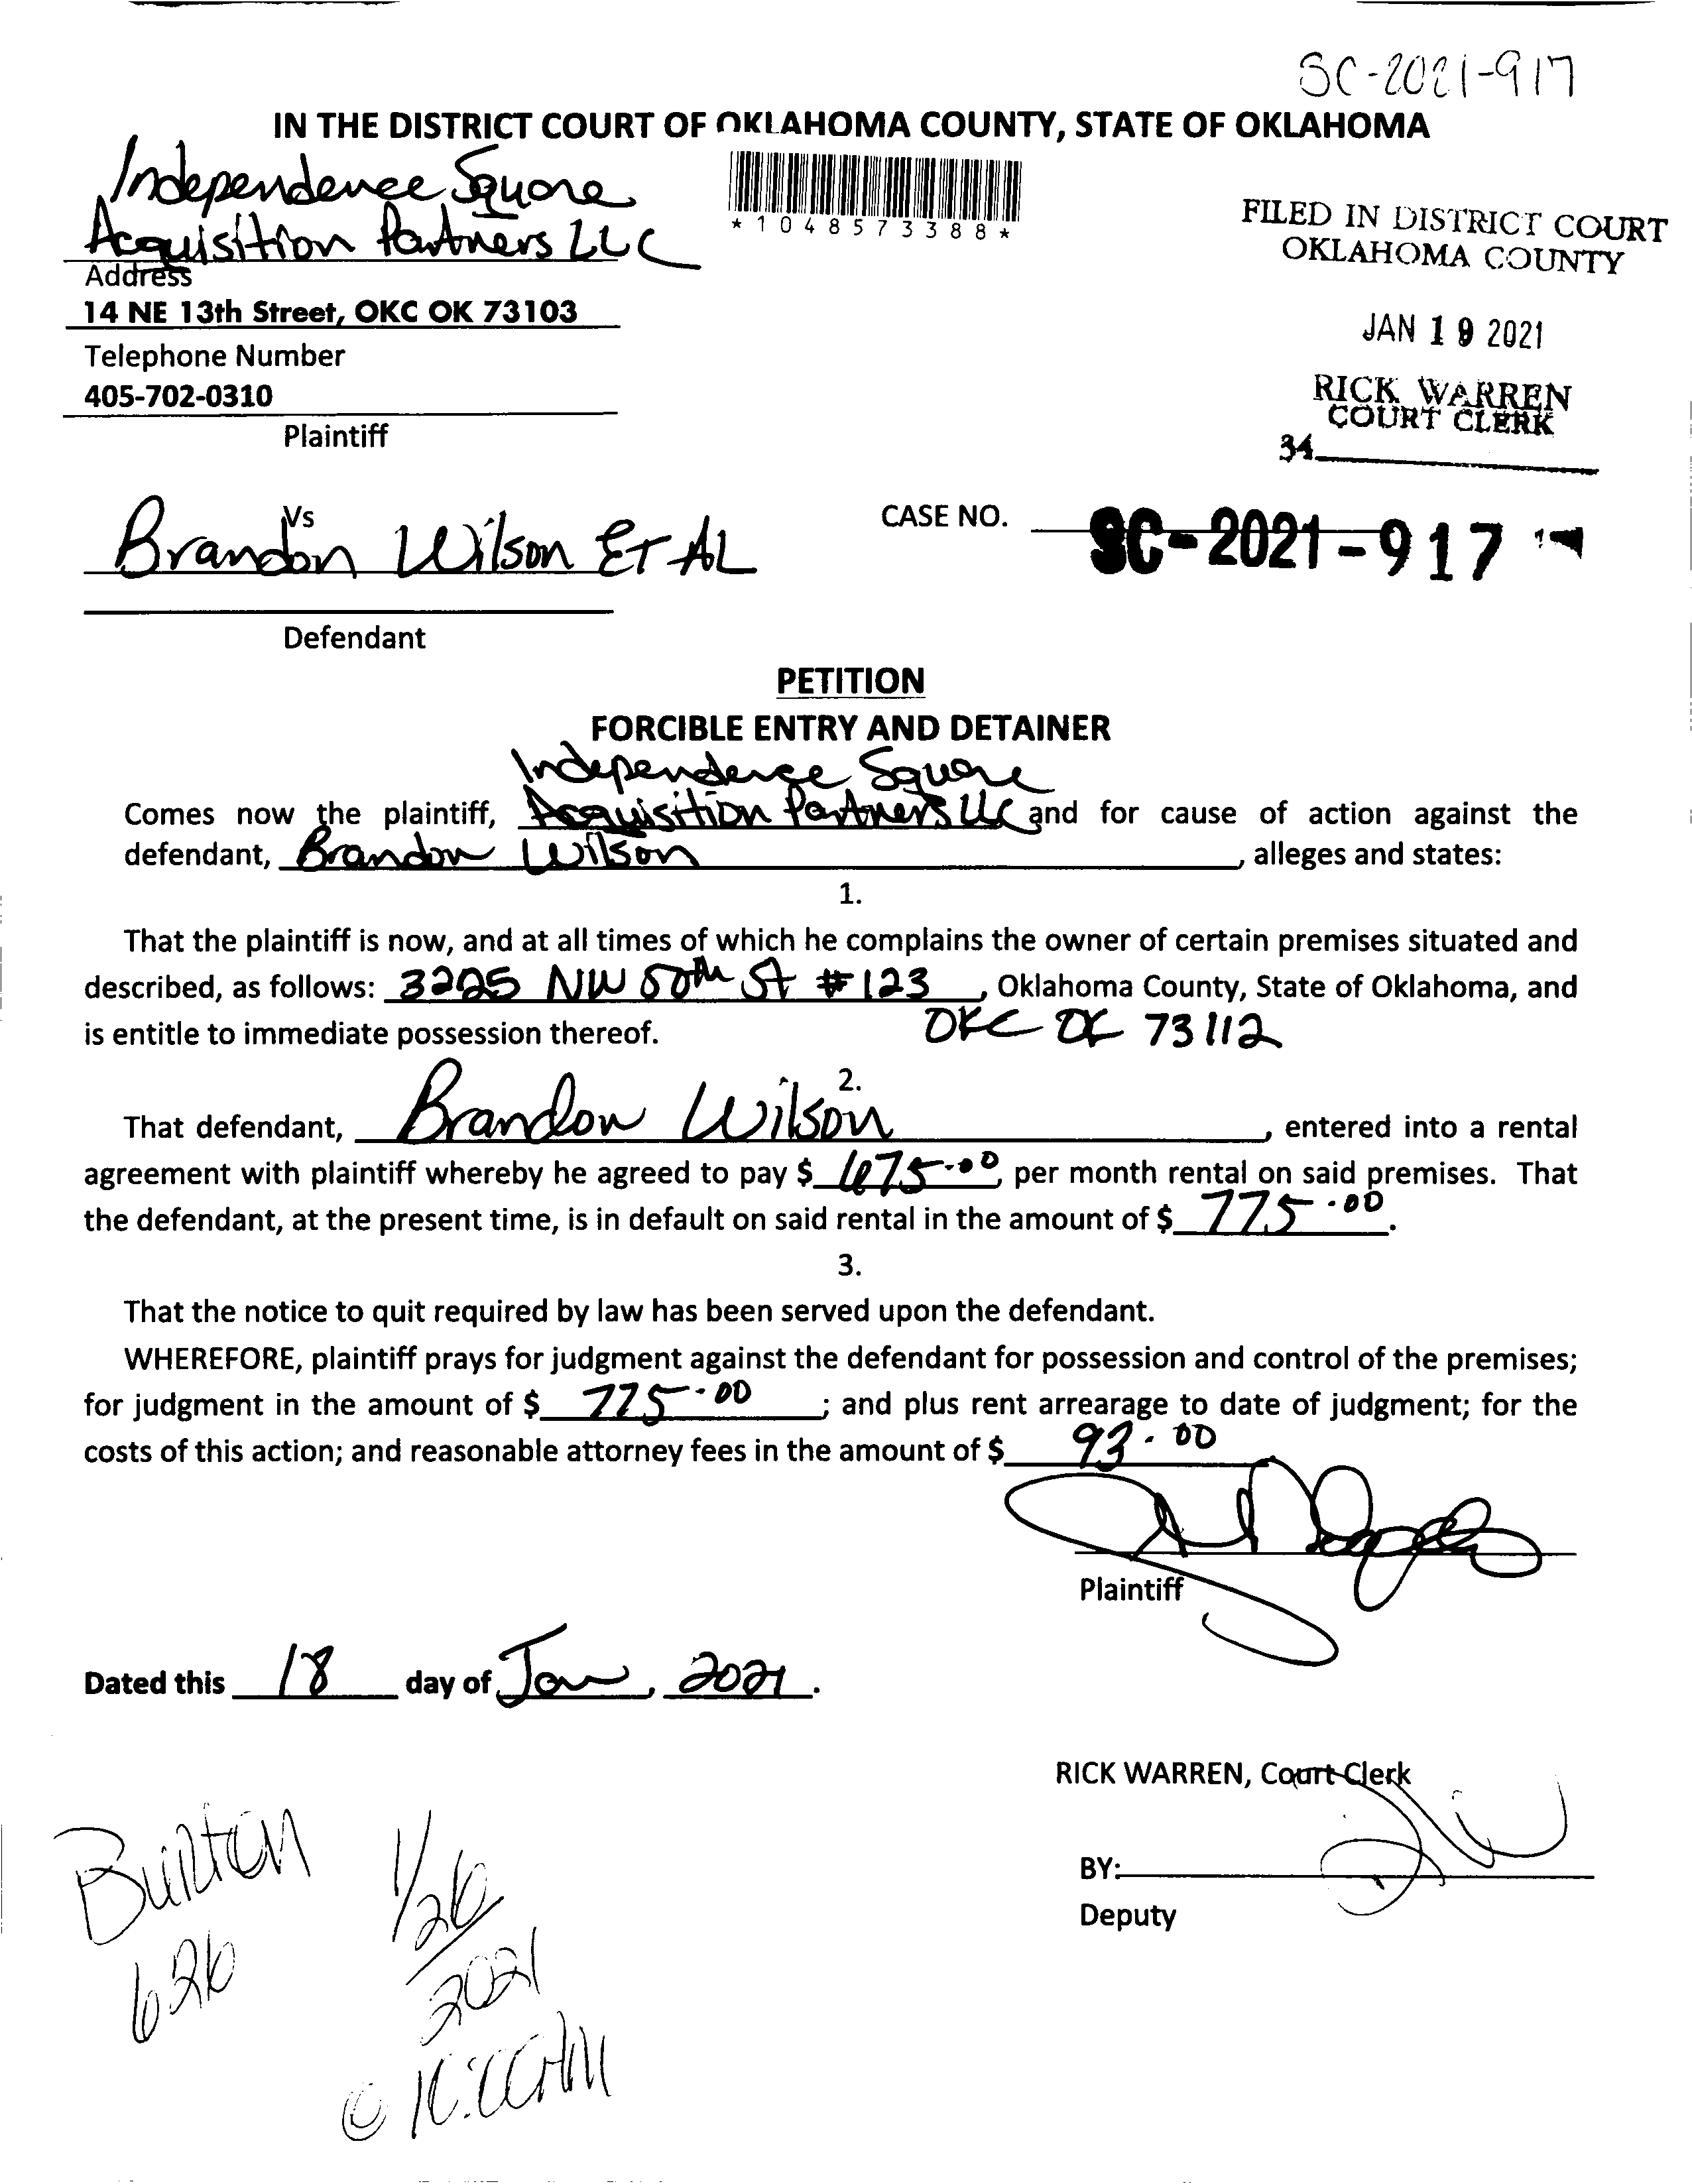 SC-2021-917
IN THE DISTRICT COURT OF OKLAHOMA COUNTY, STATE OF OKLAHOMA
Independence Square
Acquisition Partners LLC
Address
14 NE 13th Street, OKC OK 73103
Telephone Number
405-702-0310
Plaintiff
*1048573388*
FILED IN DISTRICT COURT
OKLAHOMA COUNTY
JAN 19 2021
RICK WARREN
COURT CLERK
34
Vs
Brandon Wilson ET AL
Defendant
CASE NO. SC-2021-917
PETITION
FORCIBLE ENTRY AND DETAINER
Independence Square
Comes now the plaintiff, Acquisition Partners LLC and for cause of action against the
defendant, Brandon Wilson, alleges and states:
1.
That the plaintiff is now, and at all times of which he complains the owner of certain premises situated and
described, as follows: 3225 NW 50th St #123, Oklahoma County, State of Oklahoma, and
is entitle to immediate possession thereof. OKC OK 73112
2.
That defendant, Brandon Wilson, entered into a rental
agreement with plaintiff whereby he agreed to pay $ 675.00, per month rental on said premises. That
the defendant, at the present time, is in default on said rental in the amount of $ 775.00.
3.
That the notice to quit required by law has been served upon the defendant.
WHEREFORE, plaintiff prays for judgment against the defendant for possession and control of the premises;
for judgment in the amount of $ 775.00; and plus rent arrearage to date of judgment; for the
costs of this action; and reasonable attorney fees in the amount of $ 93.00
Plaintiff
Dated this 18 day of Jan, 2021.
RICK WARREN, Court Clerk
BY:
Deputy
626
1/26
2021
@